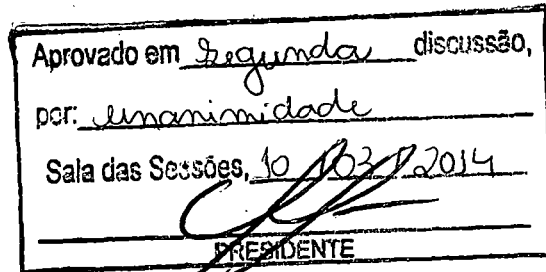 Aprovado em Segunda discussão,
por: Unanimidade
Sala das Sessões, 10 / 03 / 2014
PRESIDENTE